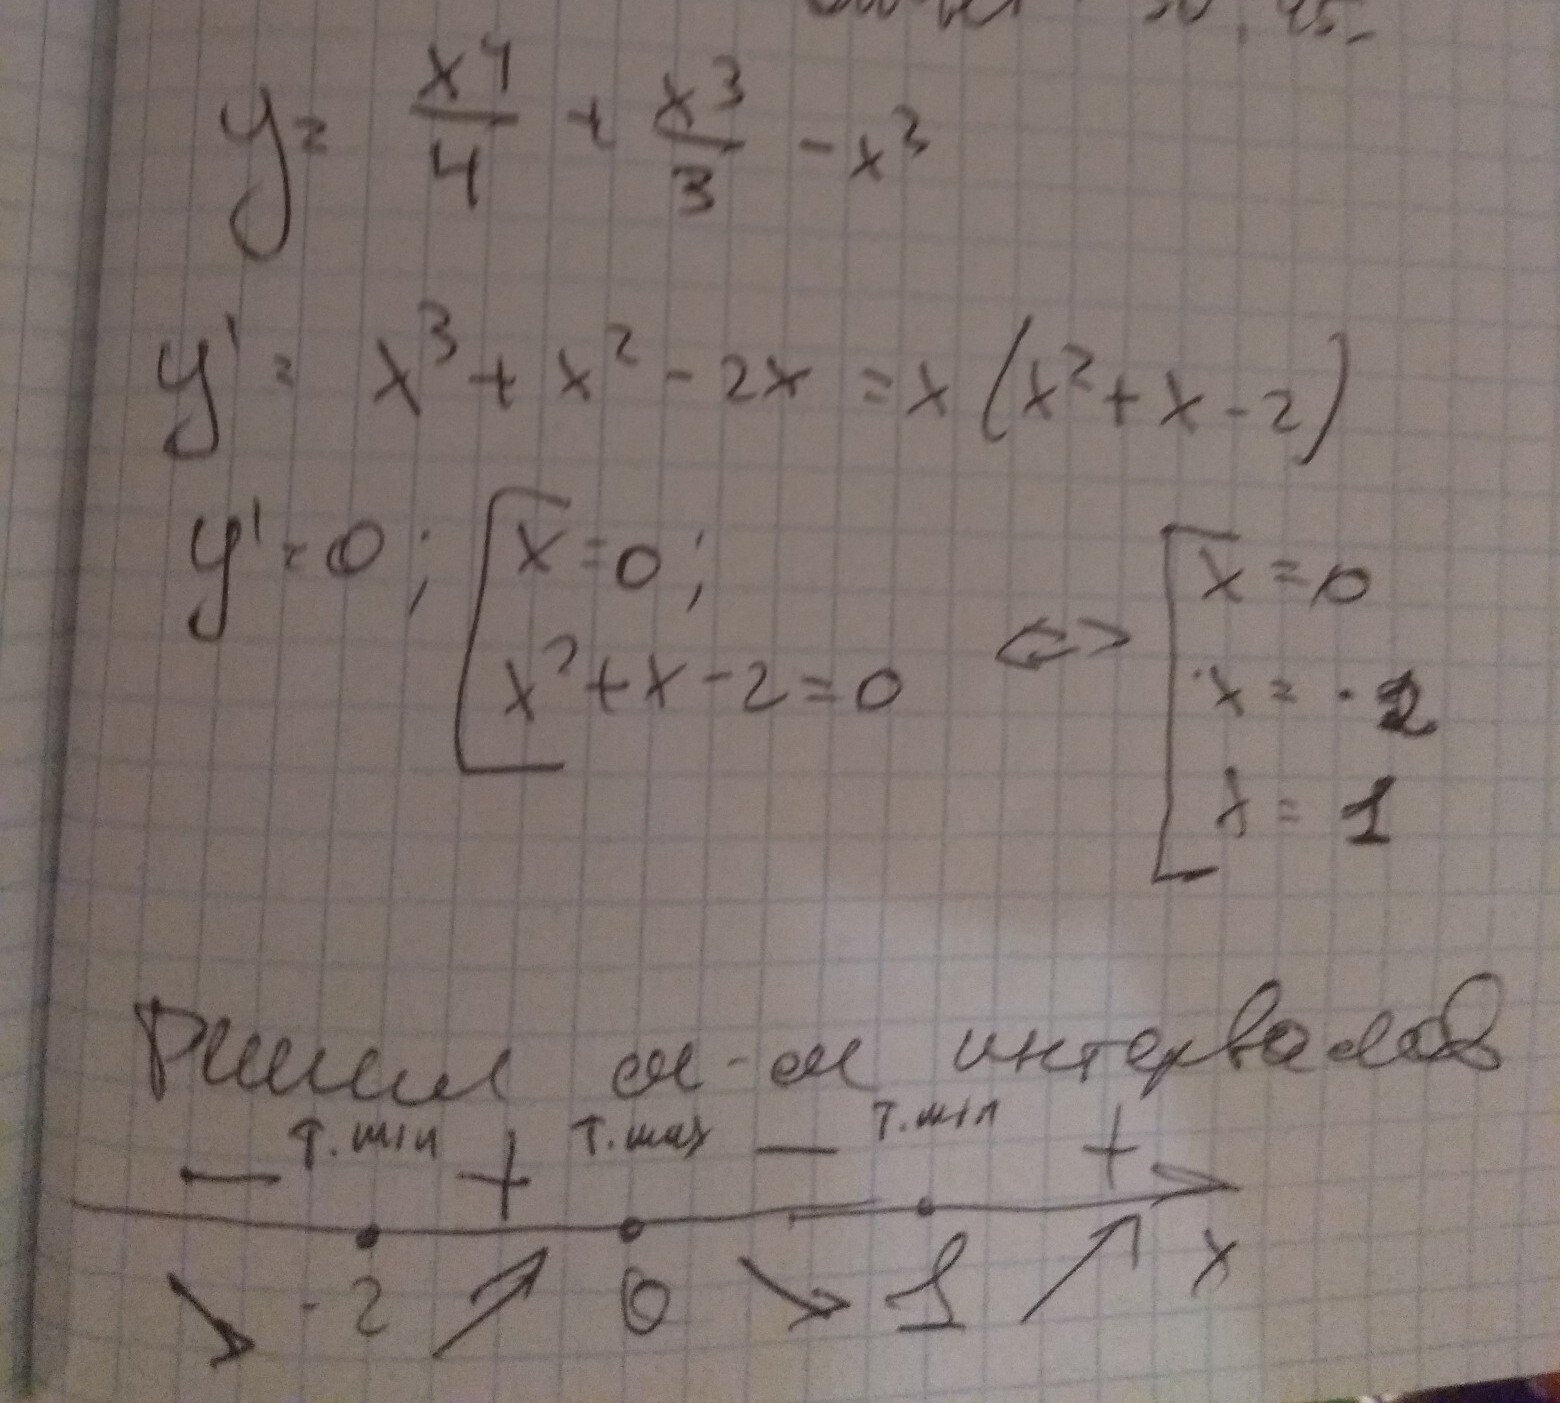 y = x⁴/4 + x³/3 - x³
y' = x³ + x² - 2x = x(x² + x - 2)
y' = 0; [x = 0; x² + x - 2 = 0 <=> [x = 0 x = -2 x = 1
Решим м-м интервалов
— т.min + т.max — т.min +
-2 0 1 x